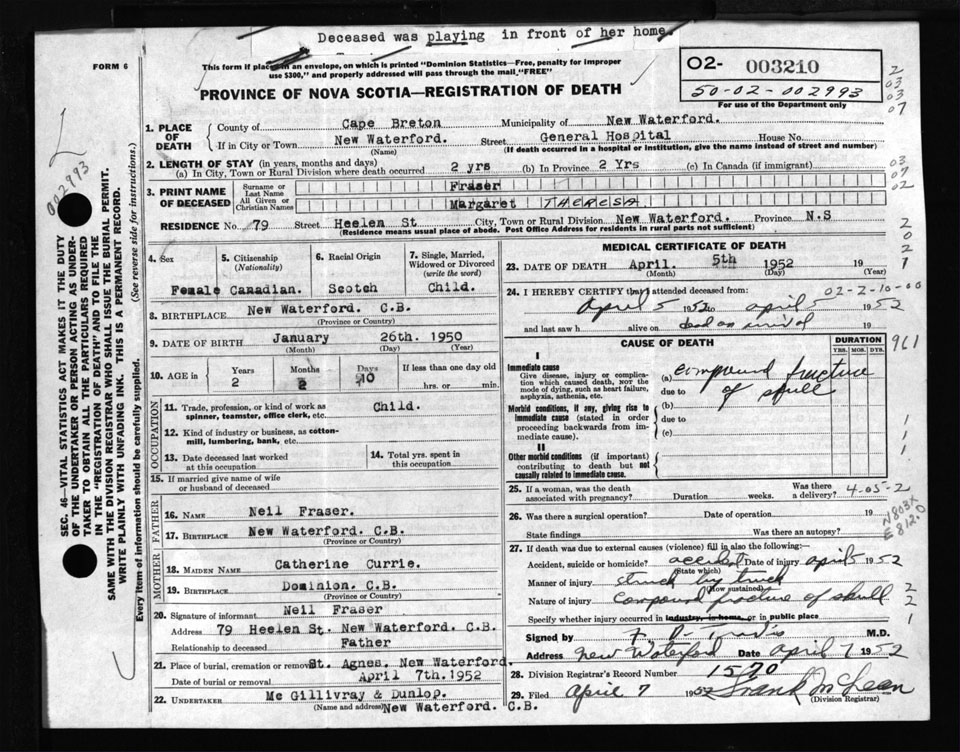 Deceased was playing in front of her home.
FORM 6
This form if placed in an envelope, on which is printed "Dominion Statistics—Free, penalty for improper
use $300," and properly addressed will pass through the mail "FREE"
PROVINCE OF NOVA SCOTIA—REGISTRATION OF DEATH
02- 003210
50-02-002993
For use of the Department only
2
03
03
07
002993
1. PLACE OF DEATH
County of Cape Breton Municipality of New Waterford.
If in City or Town New Waterford. Street General Hospital House No.
(Name) (If death occurred in a hospital or institution, give the name instead of street and number)
2. LENGTH OF STAY (in years, months and days)
(a) In City, Town or Rural Division where death occurred 2 yrs (b) In Province 2 Yrs (c) In Canada (if immigrant)
03
07
02
3. PRINT NAME OF DECEASED
Surname or Last Name Fraser
All Given or Christian Names Margaret THERESA
RESIDENCE No. 79 Street Heelen St City, Town or Rural Division New Waterford. Province N.S
(Residence means usual place of abode. Post Office Address for residents in rural parts not sufficient)
2
0
2
1
4. Sex
5. Citizenship (Nationality)
6. Racial Origin
7. Single, Married, Widowed or Divorced (write the word)
Female Canadian. Scotch Child.
8. BIRTHPLACE New Waterford. C.B.
(Province or Country)
9. DATE OF BIRTH January 26th. 1950
(Month) (Day) (Year)
10. AGE in Years Months Days If less than one day old
2 2 10 hrs. or min.
OCCUPATION
11. Trade, profession, or kind of work as spinner, teamster, office clerk, etc. Child.
12. Kind of industry or business, as cotton-mill, lumbering, bank, etc.
13. Date deceased last worked at this occupation
14. Total yrs. spent in this occupation
15. If married give name of wife or husband of deceased
FATHER
16. NAME Neil Fraser.
17. BIRTHPLACE New Waterford. C.B.
(Province or Country)
MOTHER
18. MAIDEN NAME Catherine Currie.
19. BIRTHPLACE Dominion. C.B.
(Province or Country)
20. Signature of informant Neil Fraser
Address 79 Heelen St. New Waterford. C.B.
Relationship to deceased Father
21. Place of burial, cremation or removal St. Agnes. New Waterford.
Date of burial or removal April 7th. 1952
22. UNDERTAKER Mc Gillivray & Dunlop.
(Name and address) New Waterford. C.B.
MEDICAL CERTIFICATE OF DEATH
23. DATE OF DEATH April. 5th 1952 19
(Month) (Day) (Year)
24. I HEREBY CERTIFY that I attended deceased from: 02-2-10-00
April 5 1952 to april 5 1952
and last saw h alive on dead on arrival 19
CAUSE OF DEATH
DURATION
YRS. MOS. DYS.
961
I
Immediate cause
Give disease, injury or complication which caused death, NOT the mode of dying, such as heart failure, asphyxia, asthenia, etc.
(a) compound fracture
due to of skull
Morbid conditions, if any, giving rise to immediate cause (stated in order proceeding backwards from immediate cause).
(b)
due to
(c)
1
1
1
II
Other morbid conditions (if important) contributing to death but not causally related to immediate cause.
25. If a woman, was the death associated with pregnancy? Duration weeks. Was there a delivery? 4-05-2
26. Was there a surgical operation? Date of operation 19
State findings Was there an autopsy?
N803X
E812.0
27. If death was due to external causes (violence) fill in also the following:—
Accident, suicide or homicide? accident Date of injury april 5 1952
(State which)
Manner of injury struck by truck
(How sustained)
Nature of injury compound fracture of skull
Specify whether injury occurred in industry, in home, or in public place
2
2
1
Signed by M.D.
Address New Waterford Date April 7 1952
28. Division Registrar's Record Number 1570
29. Filed april 7 1952 Frank McLean
(Division Registrar)
SEC. 46—VITAL STATISTICS ACT MAKES IT THE DUTY
OF THE UNDERTAKER OR PERSON ACTING AS UNDER-
TAKER TO OBTAIN ALL THE PARTICULARS REQUIRED
IN THE "REGISTRATION OF DEATH" AND TO FILE THE
SAME WITH THE DIVISION REGISTRAR WHO SHALL ISSUE THE BURIAL PERMIT.
WRITE PLAINLY WITH UNFADING INK. THIS IS A PERMANENT RECORD.
Every item of information should be carefully supplied. (See reverse side for instructions.)